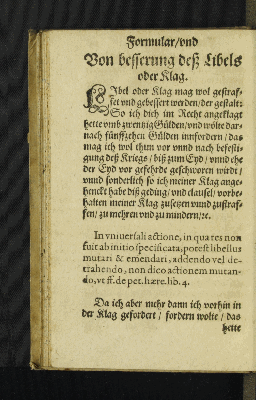 Formular/vnd
Von besserung deß Libels
oder Klag.
Libel oder Klag mag wol gestraf-
fet vnd gebessert werden/der gestalt:
So ich dich im Recht angeklagt
hette vmb zwentzig Gülden/vnd wölte dar-
nach fünfftzehen Gülden vmfordern / das
mag ich wol thun vor vnnd nach befesti-
gung deß Kriegs / biß zum Eyd / vnnd ehe
der Eyd vor gefehrde geschworen wirdt/
vnnd sonderlich so ich meiner Klag ange-
henckt habe diß geding/ vnd clausel/ vorbe-
halten meiner Klag zusetzen vnnd zustraf-
fen/ zu mehren vnd zu mindern/ꝛc.
In vniuersali actione, in qua res non
fuit ab initio specificata, potest libellus
mutari & emendari, addendo vel de-
trahendo, non dico actionem mutan-
do, vt ff. de pet. hære. hb. 4.
Da ich aber mehr dann ich vorhin in
der Klag gefordert / fordern wolte / das
hette